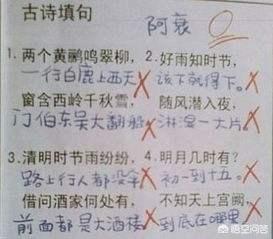 古诗填句
阿衰 0
1. 两个黄鹂鸣翠柳，
一行白鹿上西天 ×
窗含西岭千秋雪，
门伯东吴大翻船 ×
2. 好雨知时节，
该下就得下。 ×
随风潜入夜，
淋湿一大片 ×
3. 清明时节雨纷纷，
路上行人都没伞 ×
借问酒家何处有，
前面都是大酒楼 ×
4. 明月几时有？
初一到十五。 ×
不知天上宫阙，
到底在哪里 ×
悟空问答